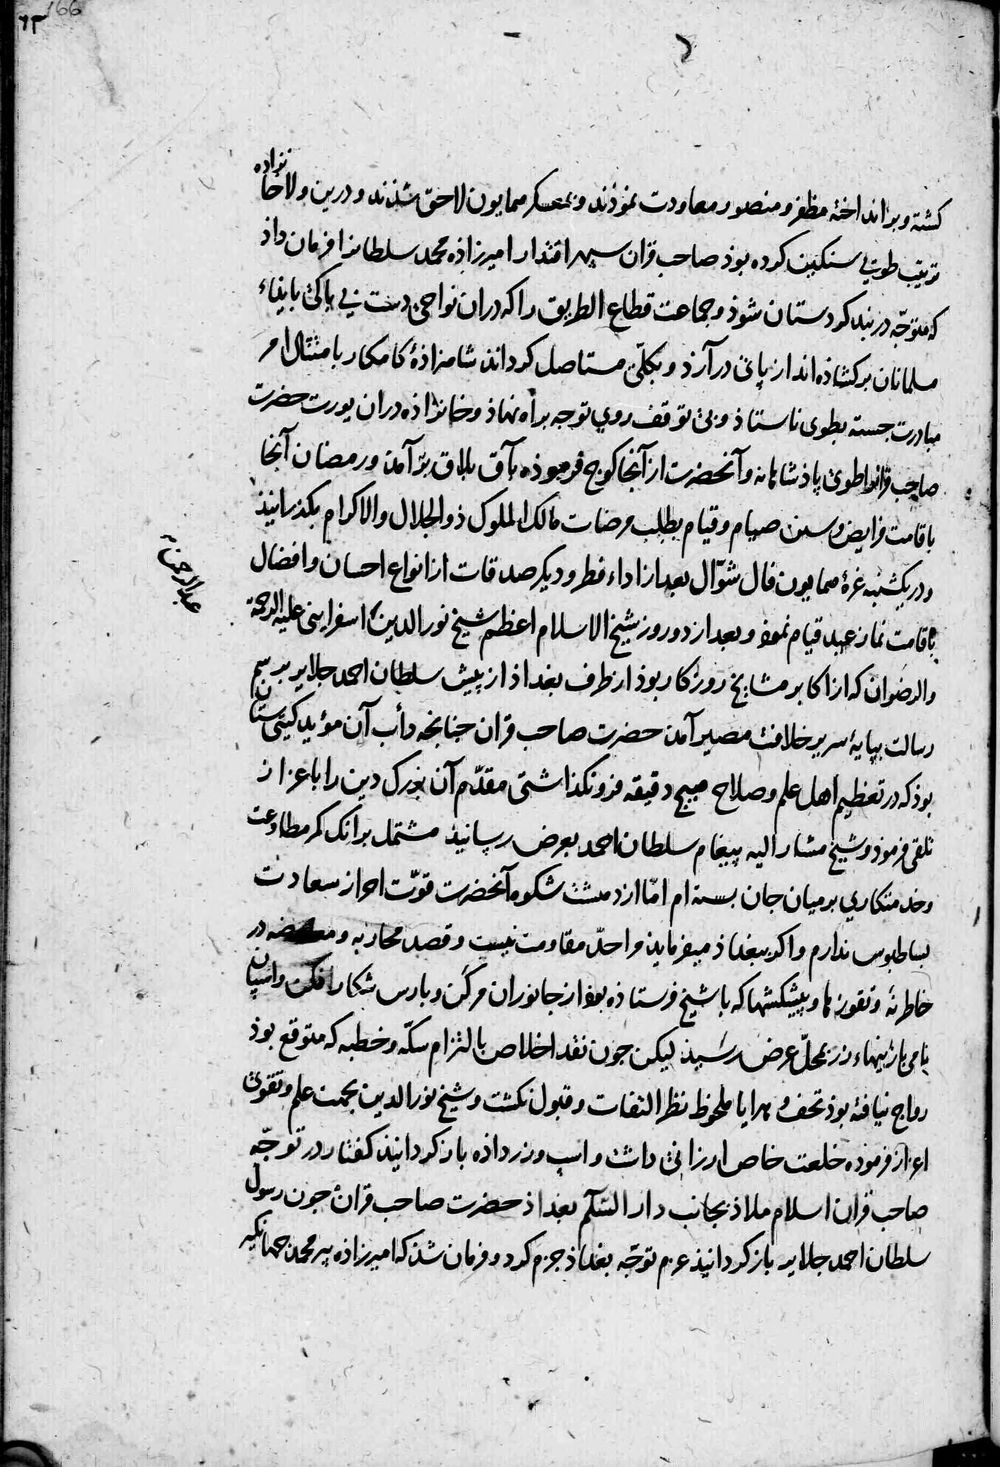 166
٦٣
کشته و برانداخته مظفر و منصور معاودت نموذند و بمعسکر همایون لاحق شذند و درین ولا خانزاده
ترتیب طویی سنکین کرده بوذ صاحب قران سپهر اقتدار امیرزاده محمد سلطانرا فرمان داذ
که متوجّه دربند کردستان شوذ و جماعت قطاع الطریق را که دران نواحی دست بی باکی بایذاء
مسلمانان برکشاذه اند از پای درآرذ و بکلّی مستاصل کرداند شاهزاذهٔ کامکار بامتثال امر
مبادرت جسته بطوی نایستاذ و بی توقف روی توجه براه نهاذ و خانزاذه دران یورت حضرت
صاحب قرانرا طوی پاذشاهانه و آنحضرت از آنجا کوچ فرموذه بآق بلاق برآمذ و رمضان آنجا
باقامت فرایض و سنن صیام و قیام بطلب مرضات مالک الملوک ذوالجلال والاکرام بکذرانیذ
و در یکشنبه غرهٔ همایون فال شوّال بعد از اداء فطر و دیکر صدقات از انواع احسان و افضال
باقامت نماز عید قیام نموذ و بعد از دو روز شیخ الاسلام اعظم شیخ نورالدین اسفراینی علیه الرحمة
عبدالرحمن
والرضوان که از اکابر مشایخ روزکار بوذ از طرف بغداذ از پیش سلطان احمد جلایر برسم
رسالت بپایهٔ سریر خلافت مصیر آمذ حضرت صاحب قران جنانجه دأب آن مؤید کیتی ستان
بوذ که در تعظیم اهل علم و صلاح هیچ دقیقه فرونکذاشتی مقدّم آن بزرک دین را باعزاز
تلقی فرموذ و شیخ مشار الیه پیغام سلطان احمد بعرض رسانیذ مشتمل برانک کمر مطاوعت
و خدمتکاری برمیان جان بسته ام امّا از دهشت شکوه آنحضرت قوّت احراز سعادت
بساطبوس ندارم و اکر ببغداذ میفرماید مرا حدّ مقاومت نیست و قصد محاربه و معارضه در
خاطر نه و تقوزها و پیشکشها که با شیخ فرستاذه بوذ از جانوران و بارس شکار افکن و اسپان
تازی بازینهاء زر بمحلّ عرض رسیذ لیکن جون نقد اخلاص بالتزام سکّه و خطبه که متوقع بوذ
رواج نیافته بوذ تحف و هدایا ملحوظ نظر التفات و قبول نکشت و شیخ نورالدین بجهت علم و تقوی
اعزاز فرموده خلعت خاص ارزانی داشت و اسپ و زر داذه بازکردانیذ کفتار در توجّه
صاحب قران اسلام ملاذ بجانب دار السّلم بغداذ حضرت صاحب قران جون رسول
سلطان احمد جلایر بازکردانیذ عزم توجّه بغداذ جزم کرد و فرمان شذ که امیرزاذه پیر محمد جهانکیر